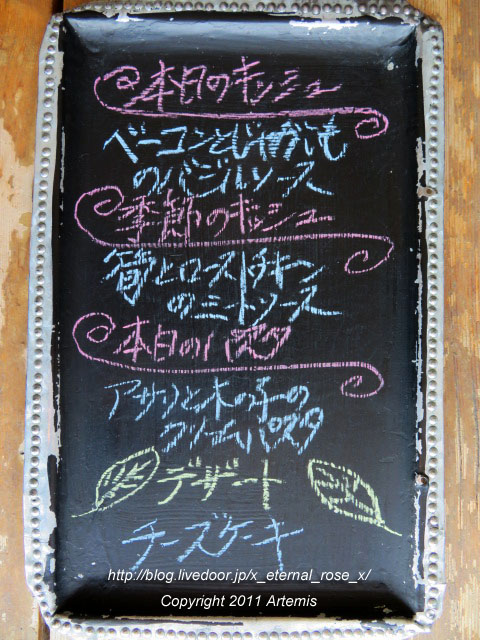 本日のキッシュ
ベーコンとじゃがいも
のバジルソース
季節のキッシュ
筍とローストチキン
のミートソース
本日のパスタ
アサリと木の子の
クリームパスタ
デザート
チーズケーキ
http://blog.livedoor.jp/x_eternal_rose_x/
Copyright 2011 Artemis